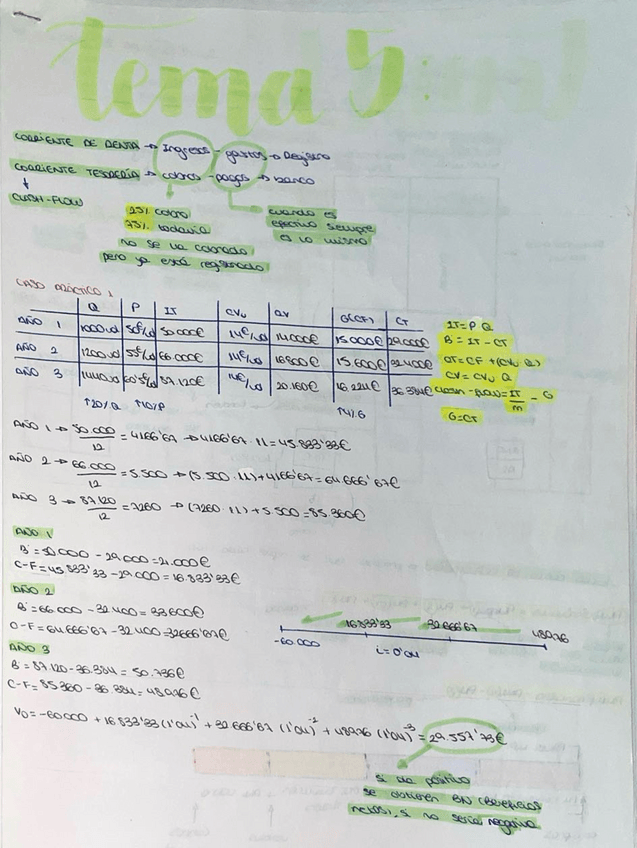 tema 5:
CORRIENTE DE RENTA → Ingresos - gastos → Registro
CORRIENTE TESORERÍA → cobros - pagos → banco
CASH-FLOW
25% cobro
75% todavía
no se ha cobrado
pero ya está registrado
cuando es
efectivo siempre
es lo mismo
CASO PRÁCTICO 1
Q P IT CVu CV G(CF) CT
AÑO 1 1000ud 50€/ud 50.000€ 14€/ud 14.000€ 15.000€ 29.000€
AÑO 2 1200ud 55€/ud 66.000€ 14€/ud 16.800€ 15.600€ 32.400€
AÑO 3 1440ud 60'5€/ud 87.120€ 14€/ud 20.160€ 16.224€ 36.384€
↑20% Q ↑10% P ↑4% G
IT = P · Q
B = IT - CT
CT = CF + (CVu · Q)
CV = CVu · Q
cash-flow = IT/m - G
G = CT
AÑO 1 → 50.000/12 = 4166'67 → 4166'67 · 11 = 45.833'33€
AÑO 2 → 66.000/12 = 5.500 → (5.500 · 11) + 4166'67 = 64.666'67€
AÑO 3 → 87.120/12 = 7260 → (7260 · 11) + 5.500 = 85.360€
AÑO 1
B = 50.000 - 29.000 = 21.000€
C-F = 45.833'33 - 29.000 = 16.833'33€
AÑO 2
B = 66.000 - 32.400 = 33.600€
C-F = 64.666'67 - 32.400 = 32.266'67€
AÑO 3
B = 87.120 - 36.384 = 50.736€
C-F = 85.360 - 36.384 = 48.976€
-60.000 16.833'33 32.666'67 48976
i = 0'04
V0 = -60.000 + 16.833'33 (1'04)⁻¹ + 32.666'67 (1'04)⁻² + 48976 (1'04)⁻³ = 29.557'73€
si da positivo
se obtienen BN (beneficios
netos), si no sería negativo